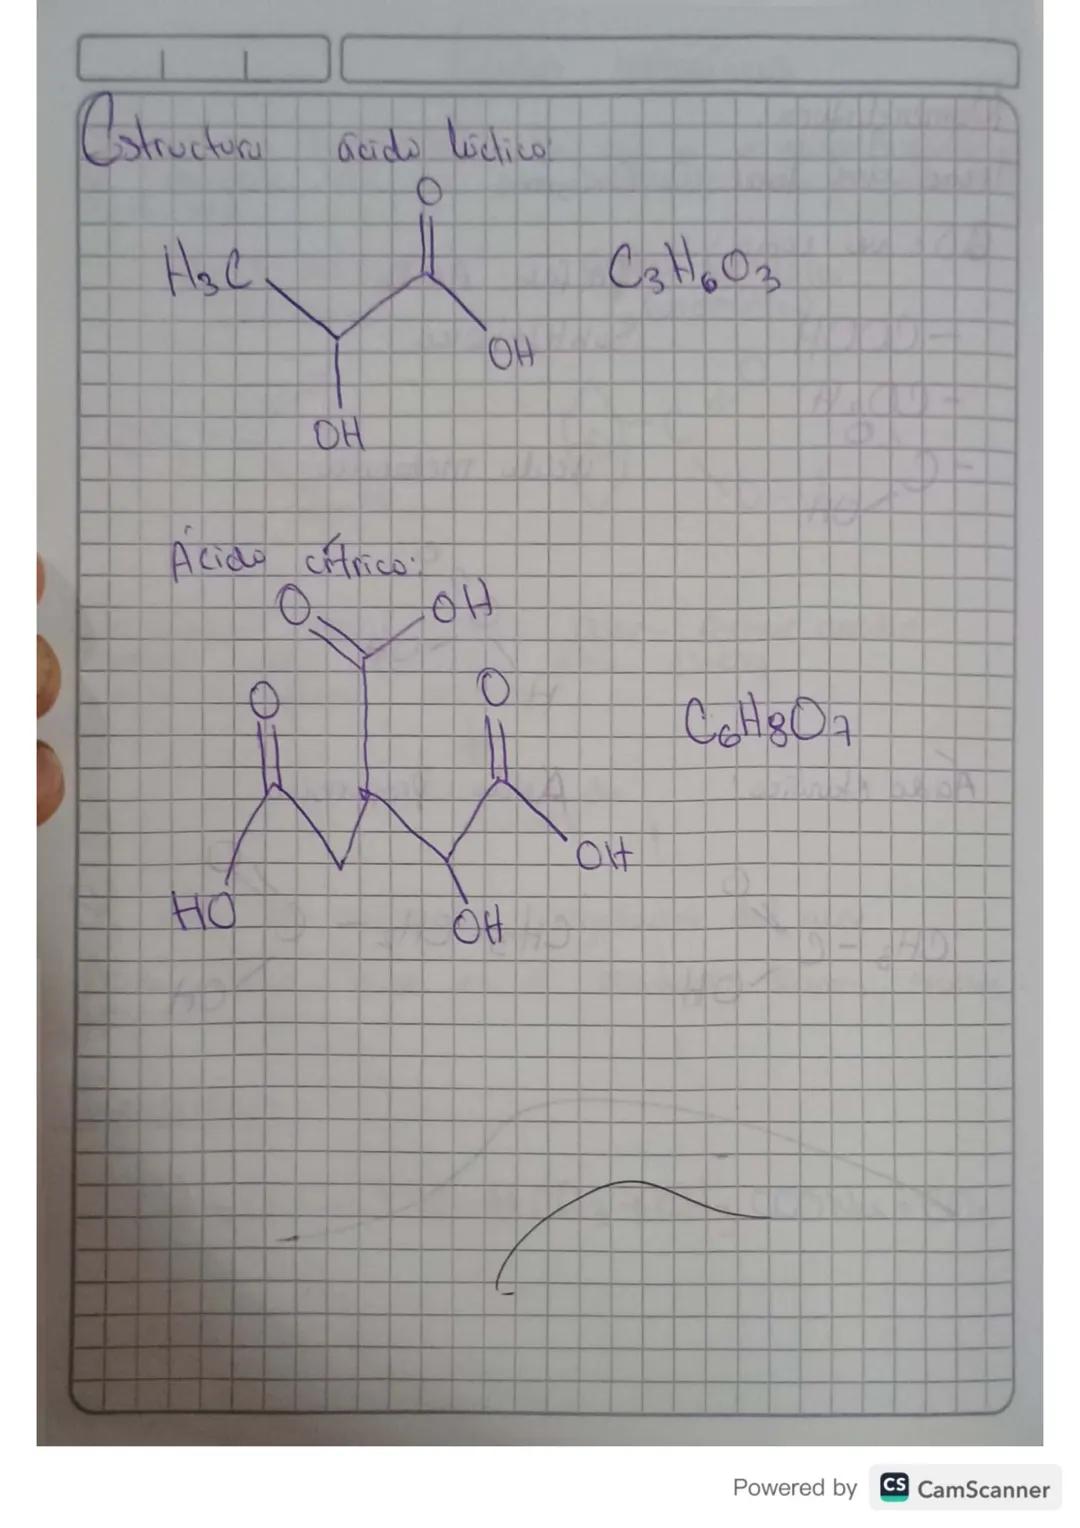 Estructura ácido láctico
O
H₃C
C₃H₆O₃
OH
OH
Ácido cítrico:
O OH
O O
C₆H₈O₇
OH
HO
OH
Powered by CS CamScanner